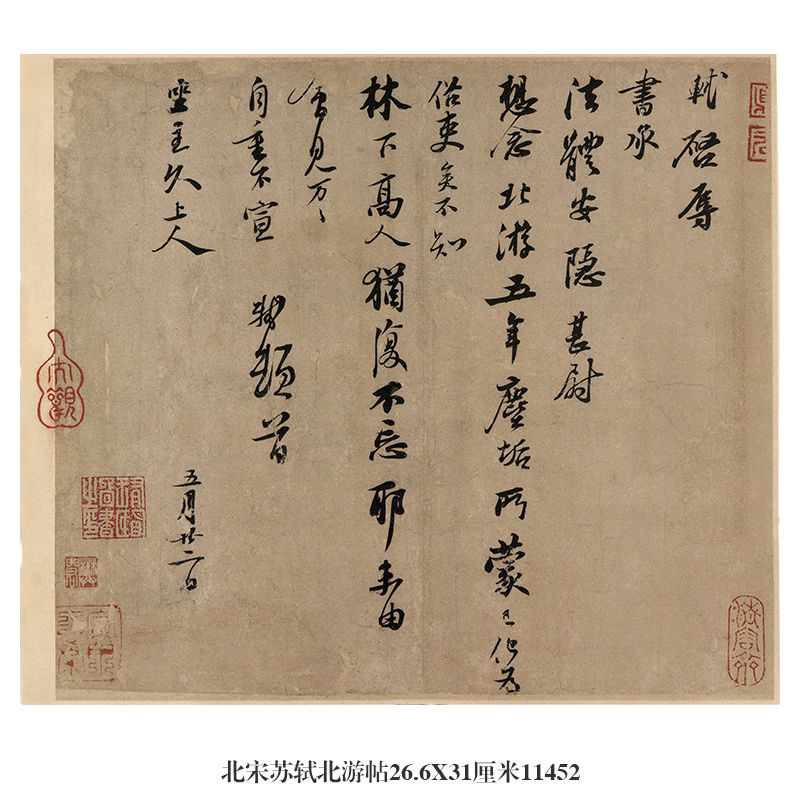 軾啓辱
書承
法體安隱甚尉
想念北游五年塵垢所蒙已化爲
俗吏矣不知
林下高人猶復不忘耶未由
會見万万
自重不宣 軾頓首
坐主久上人
五月廿二日
北宋苏轼北游帖26.6X31厘米11452